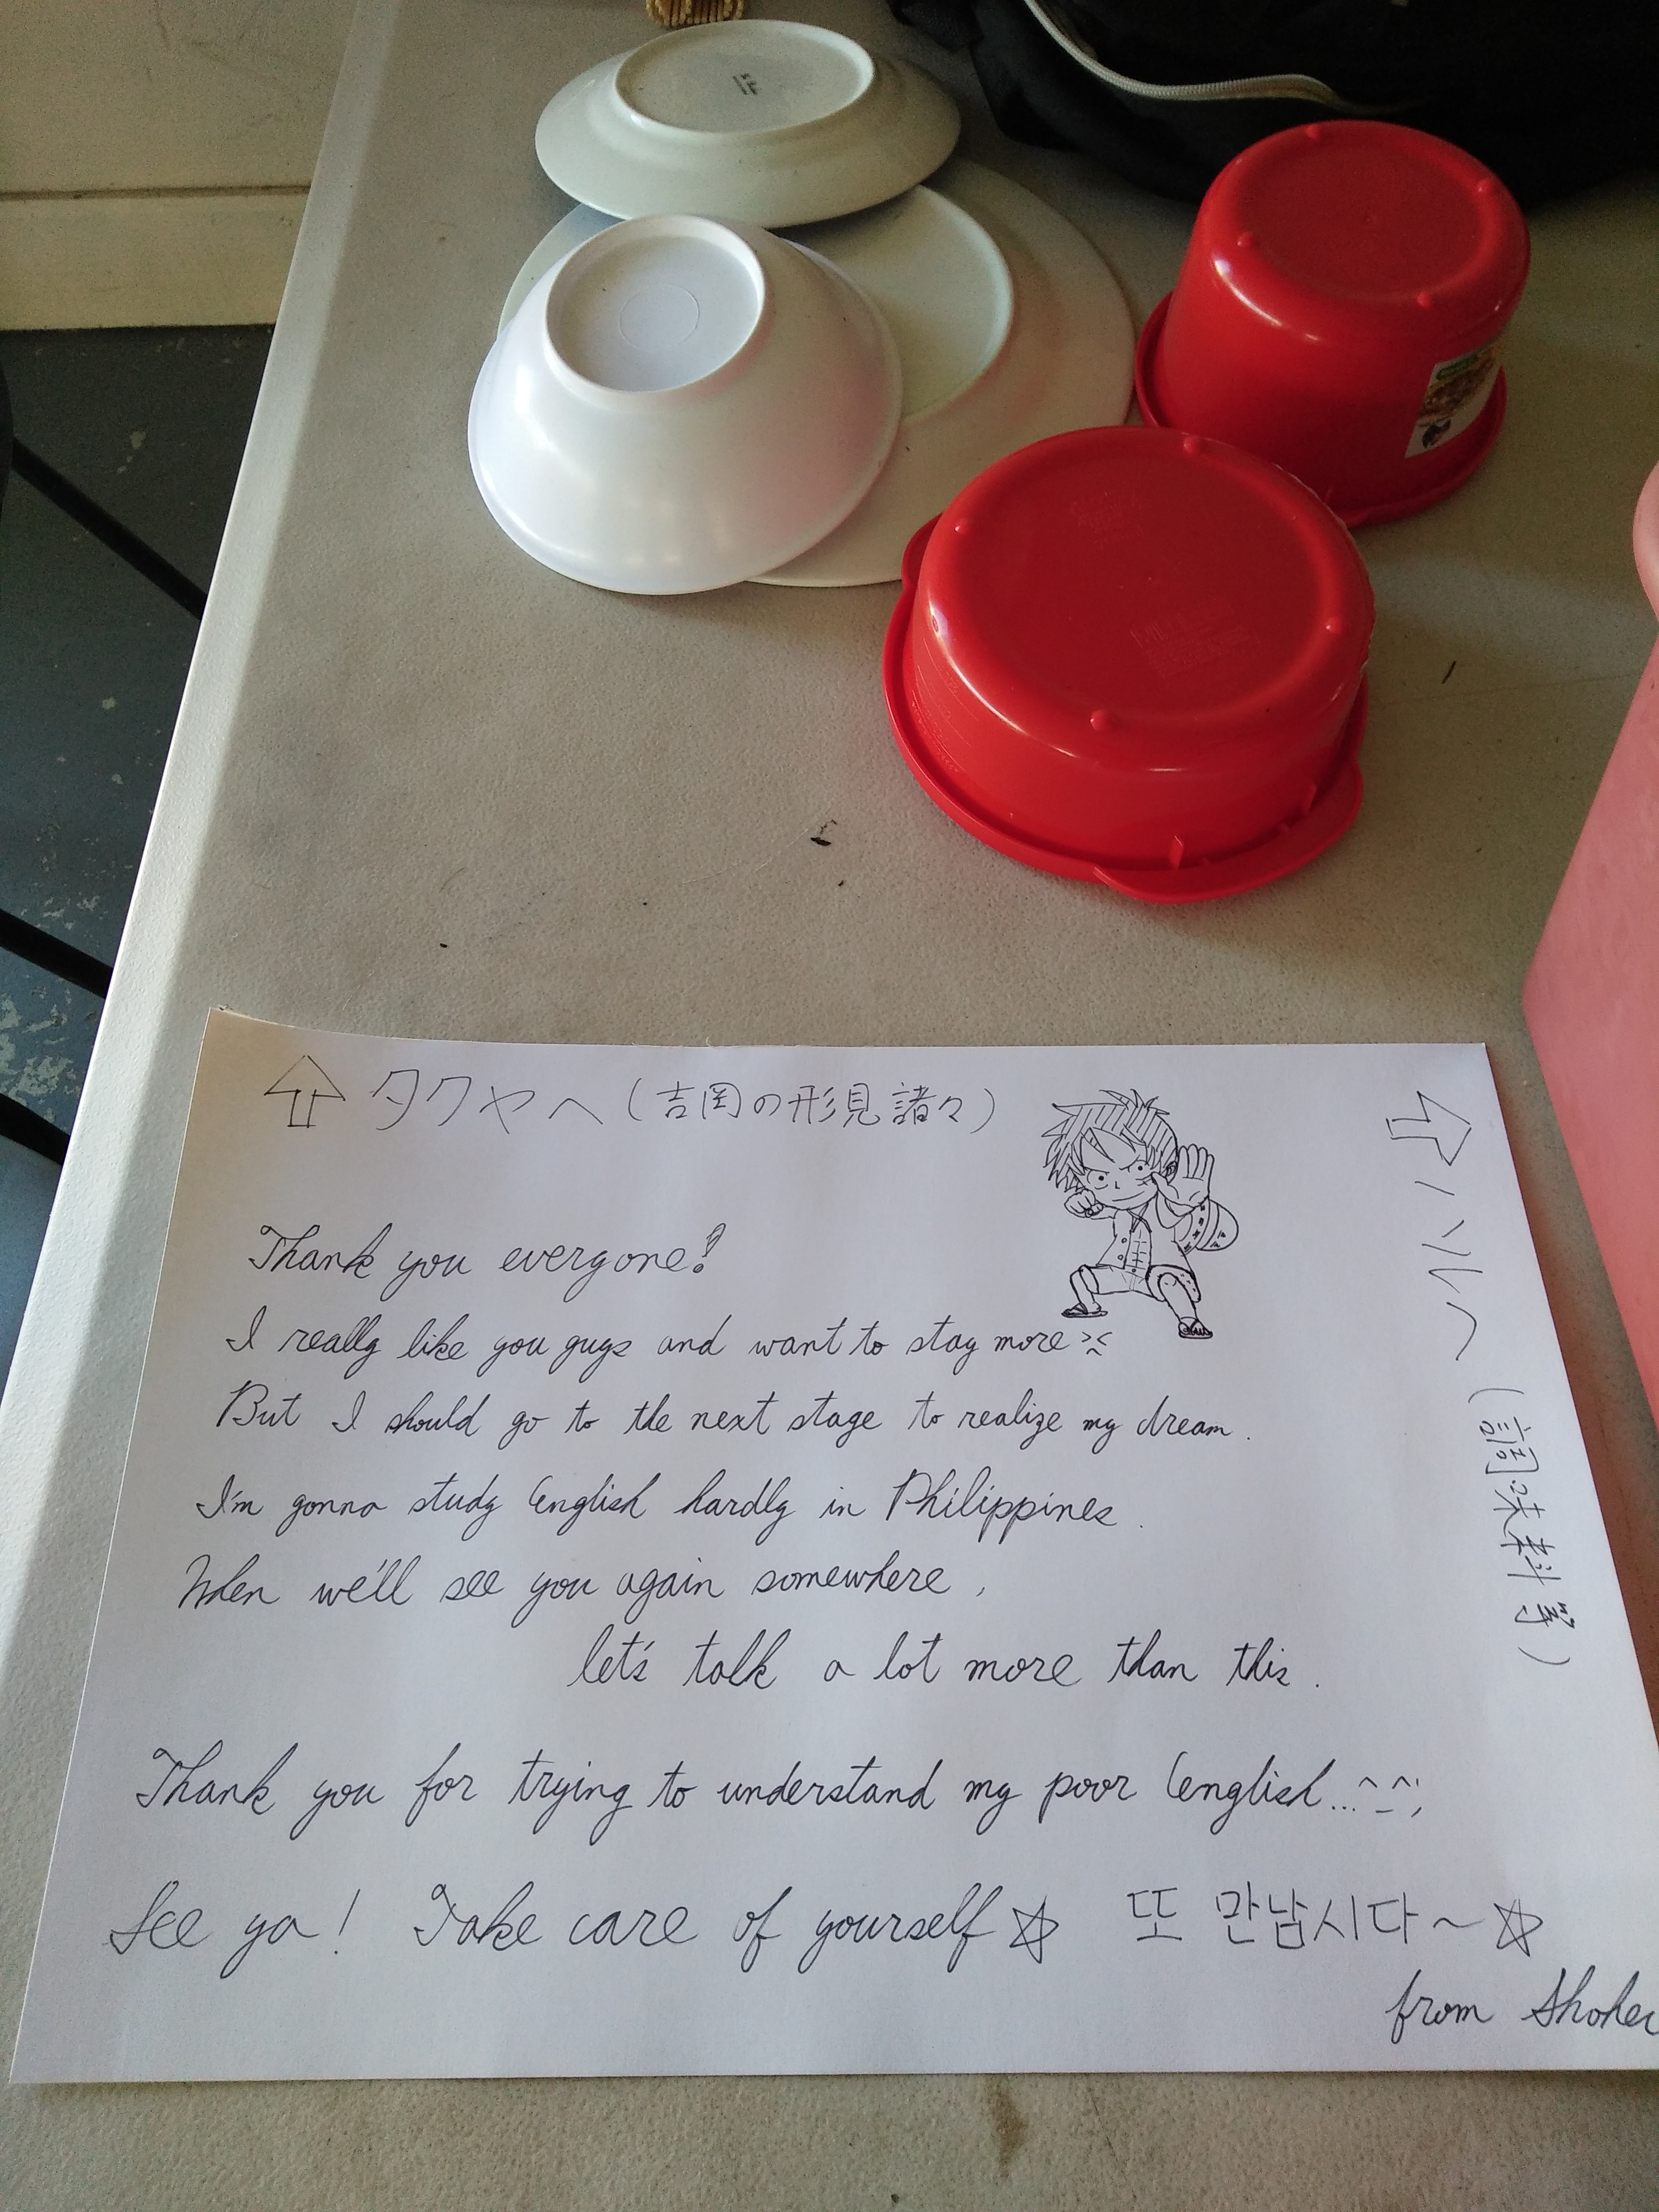 タクヤへ（吉岡の形見諸々）
ハルへ（調味料等）
Thank you everyone!
I really like you guys and want to stay more ><
But I should go to the next stage to realize my dream.
I'm gonna study English hardly in Philippines.
When we'll see you again somewhere,
let's talk a lot more than this.
Thank you for trying to understand my poor English...^_^;
See ya! Take care of yourself☆ 또 만납시다~☆
from Shohei